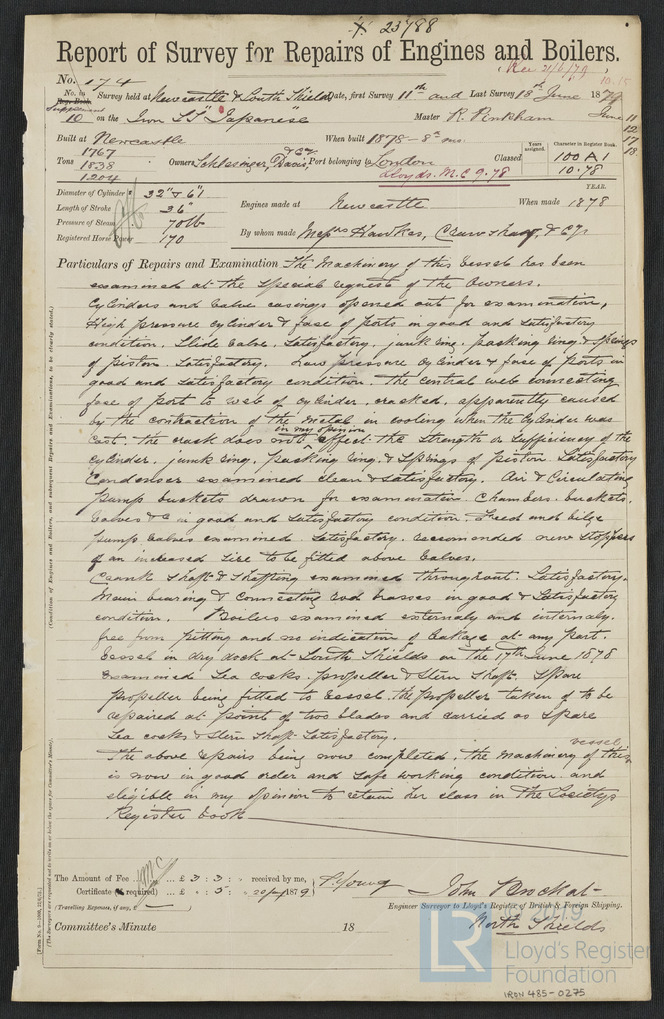 23788
Report of Survey for Repairs of Engines and Boilers.
Rec 21/6/79
No. 174
No. in Reg. Book Supplement 10 Survey held at Newcastle & South Shields Date, first Survey 11th and Last Survey 18th June 1879
on the Iron SS "Japanese" Master R. Penkham
June 11
12
17
18
Built at Newcastle When built 1878 - 8th mo.
Tons 1767
1838
1204
Owners Schlesinger, Davis, & Co Port belonging to London Classed
Years assigned.
Character in Register Book.
100 A 1
10.78
Lloyds. M.C 9.78
Diameter of Cylinder 32" & 61
Length of Stroke 36"
Pressure of Steam 70 lb
Registered Horse Power 170
Engines made at Newcastle When made 1878
YEAR.
By whom made Messrs Hawkes, Crawshay, & Co
Particulars of Repairs and Examination The Machinery of this vessel has been
examined at the special request of the Owners.
Cylinders and valve casings opened out for examination,
High pressure cylinder & face of ports in good and satisfactory
condition. Slide valve. satisfactory, junk ring. packing ring & springs
of piston. satisfactory. Low pressure cylinder & face of ports in
good and satisfactory condition. the central web connecting
face of port to web of cylinder. cracked, apparently caused
by the contraction of the metal in cooling when the cylinder was
cast. the crack does not in my opinion effect the strength or sufficiency of the
cylinder. junk ring, packing ring, & springs of piston satisfactory
Condenser examined clean & satisfactory. Air & Circulating
pump buckets drawn for examination. Chambers. buckets.
valves &c in good and satisfactory condition. Feed and bilge
pump valves examined. satisfactory. recommended new stoppers
of an increased size to be fitted above valves.
Crank Shaft & shafting examined throughout. Satisfactory.
Main bearing & connecting rod brasses in good & satisfactory
condition. Boilers examined externaly and internaly.
free from pitting and no indication of leakage at any part.
Vessel in dry dock at South Shields on the 17th June 1878
Examined Sea cocks. propeller & Stern Shaft. Spare
propeller being fitted to vessel. the propeller taken of to be
repaired at point of two blades and carried as spare
Sea cocks & Stern Shaft Satisfactory.
The above repairs being now completed the machinery of this vessel
is now in good order and safe working condition. and
eligible in my opinion to retain her class in the Societys
Register book
(Condition of Engines and Boilers, and subsequent Repairs and Examinations, to be clearly stated.)
(The Surveyors are requested not to write on or below the space for Committee's Minute).
The Amount of Fee ... £ 3 : 3 : received by me,
Certificate (if required) ... £ : 5 : 20 June 1879 P. Young
(Travelling Expenses, if any, £ )
John Brockat
Engineer Surveyor to Lloyd's Register of British & Foreign Shipping.
North Shields
Committee's Minute 18
LR
© 2019
Lloyd's Register
Foundation
IRON 485-0275